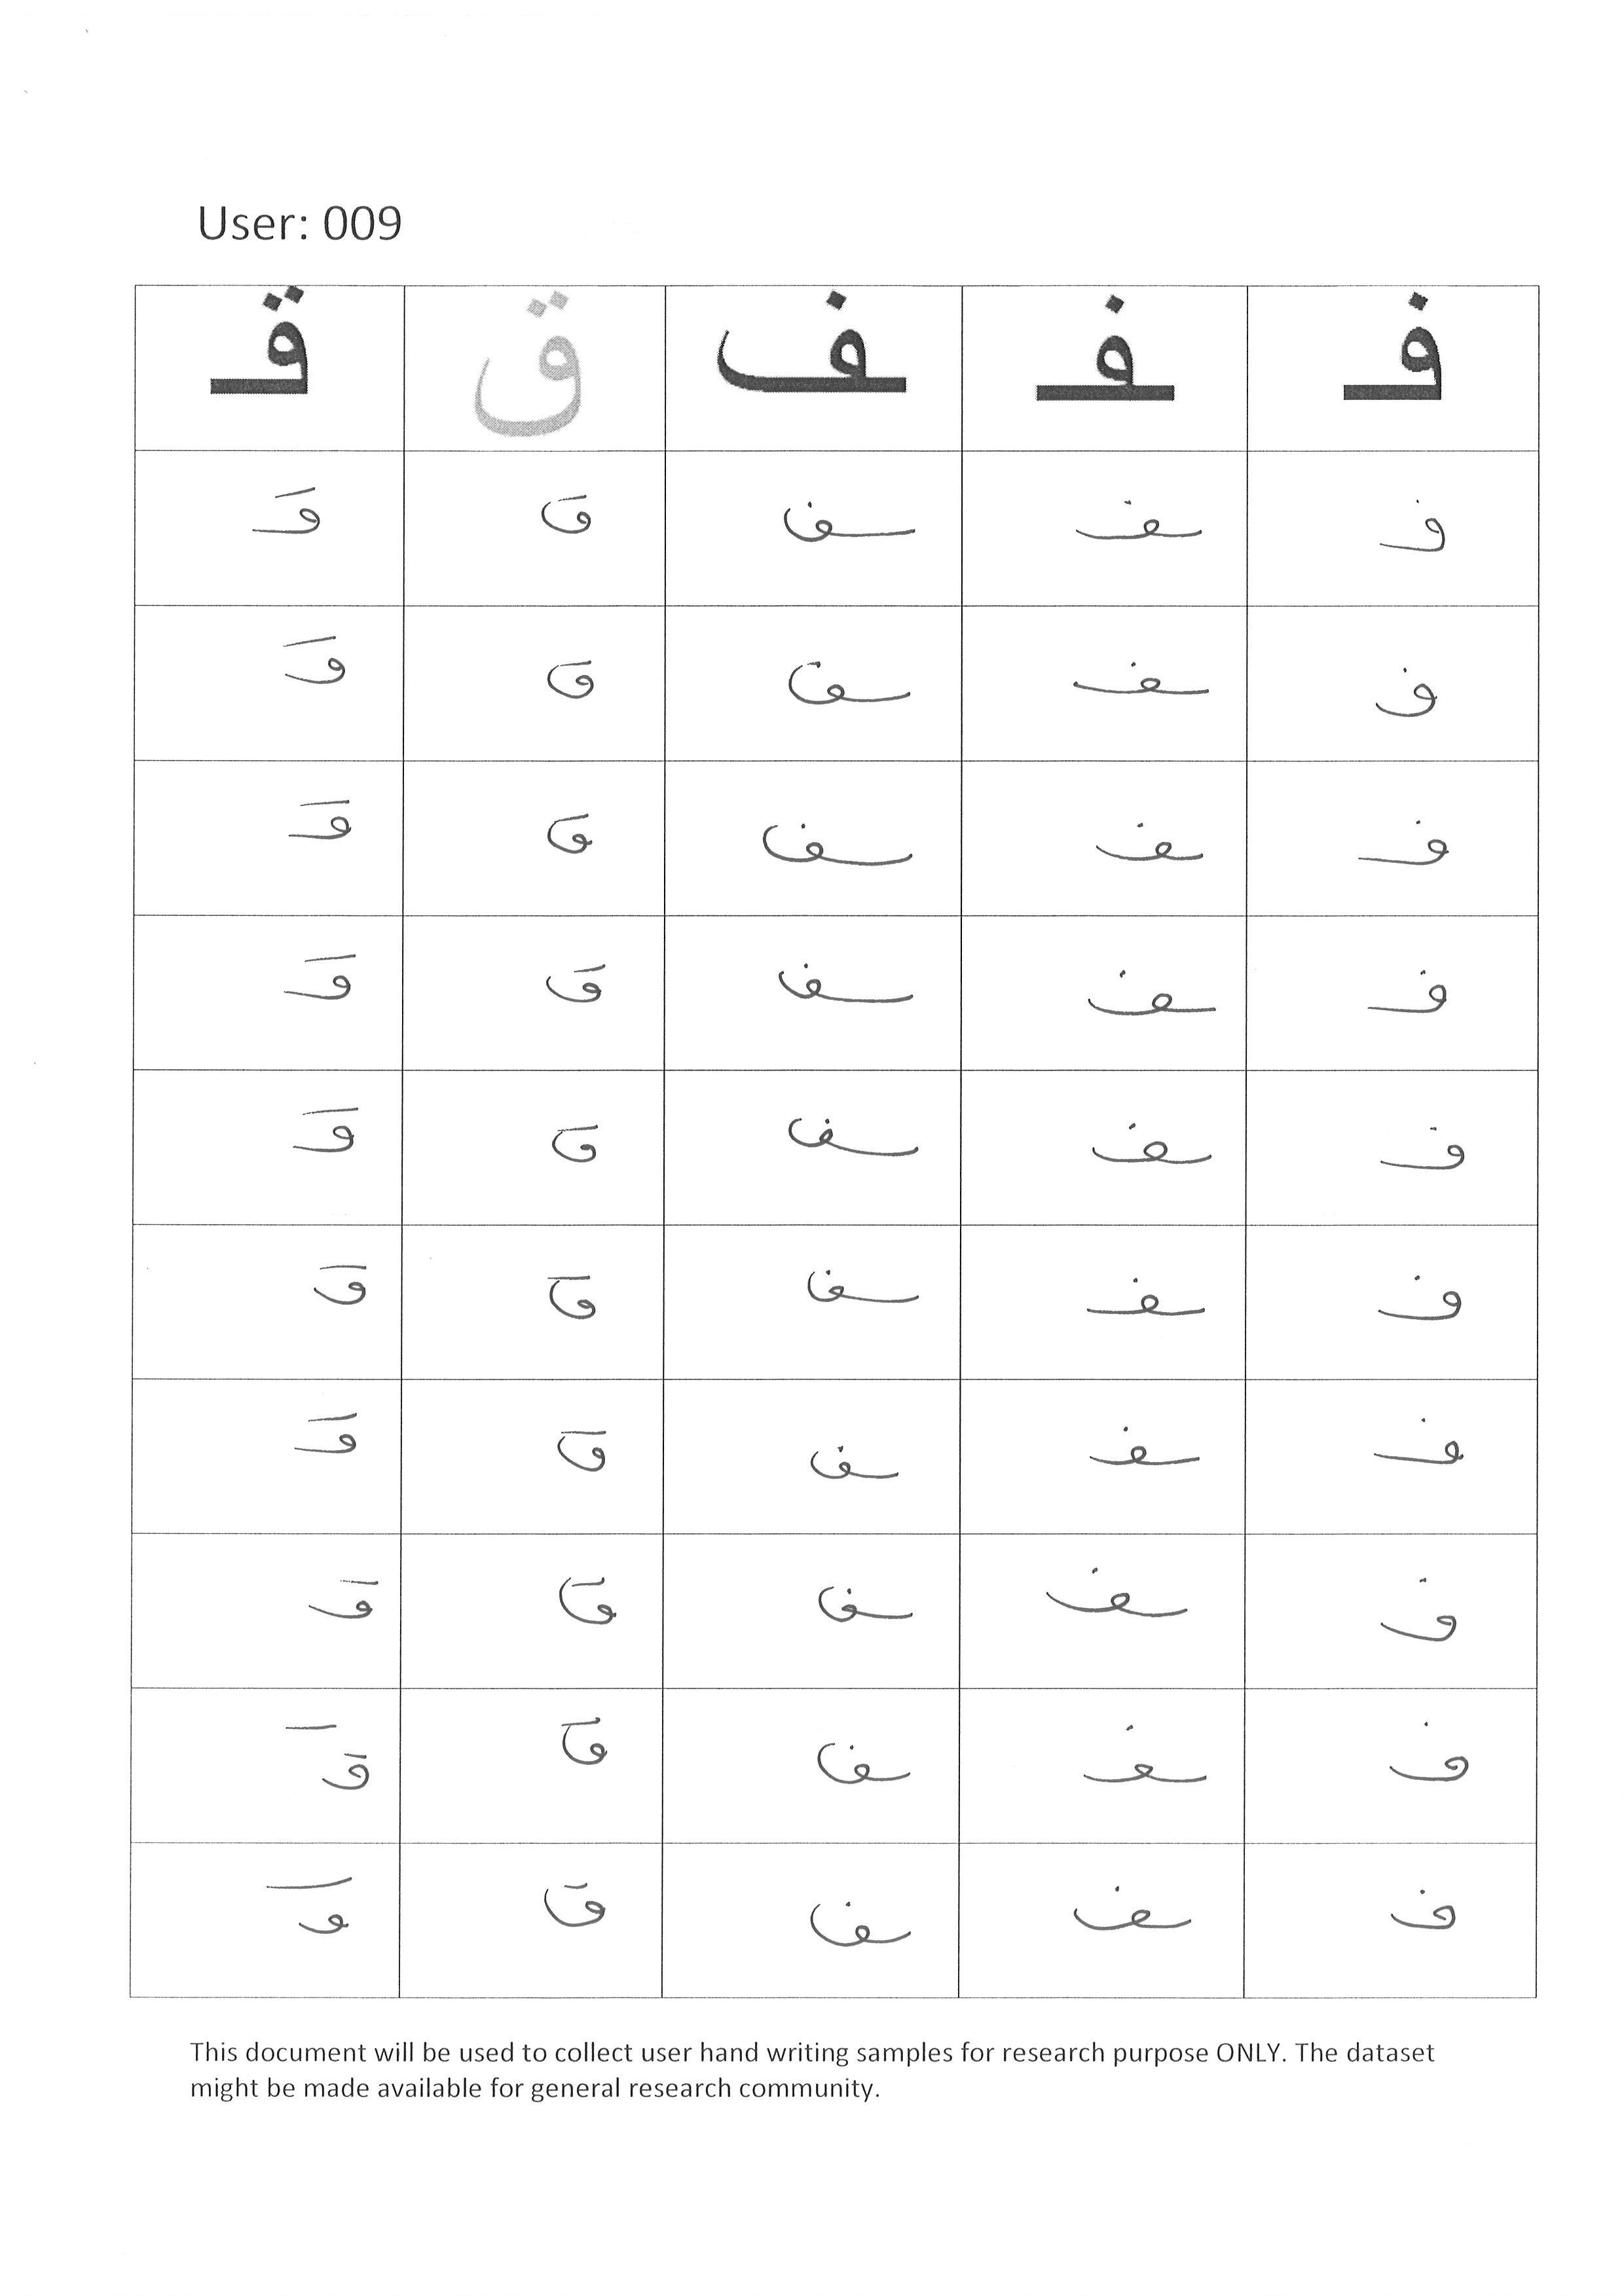 User: 009
فـ ـفـ ـف ق قـ
فـ ـفـ ـف ق قـ
فـ ـفـ ـف ق قـ
فـ ـفـ ـف ق قـ
فـ ـفـ ـف ق قـ
فـ ـفـ ـف ق قـ
فـ ـفـ ـف ق قـ
فـ ـفـ ـف ق قـ
فـ ـفـ ـف ق قـ
فـ ـفـ ـف ق قـ
فـ ـفـ ـف ق قـ
This document will be used to collect user hand writing samples for research purpose ONLY. The dataset
might be made available for general research community.